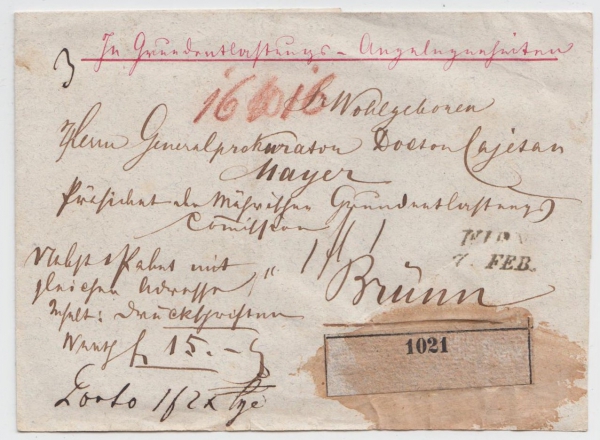 In Grundentlastungs-Angelegenheiten
3
Sr Wohlgeboren
Herrn Generalprokurator Doctor Cajetan
Mayer
Präsident der Mährischen Grundentlastungs
Comission
WIEN
7. FEB.
Nebst 1 Paket mit
gleicher Adresse
Brünn
Inhalt: Druckschriften
Werth f 15.-
1021
Porto 1f 2x